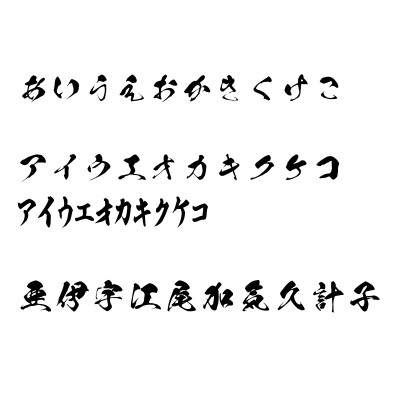 あいうえおかきくけこ
アイウエオカキクケコ
アイウエオカキクケコ
亜伊宇江尾加気久計子